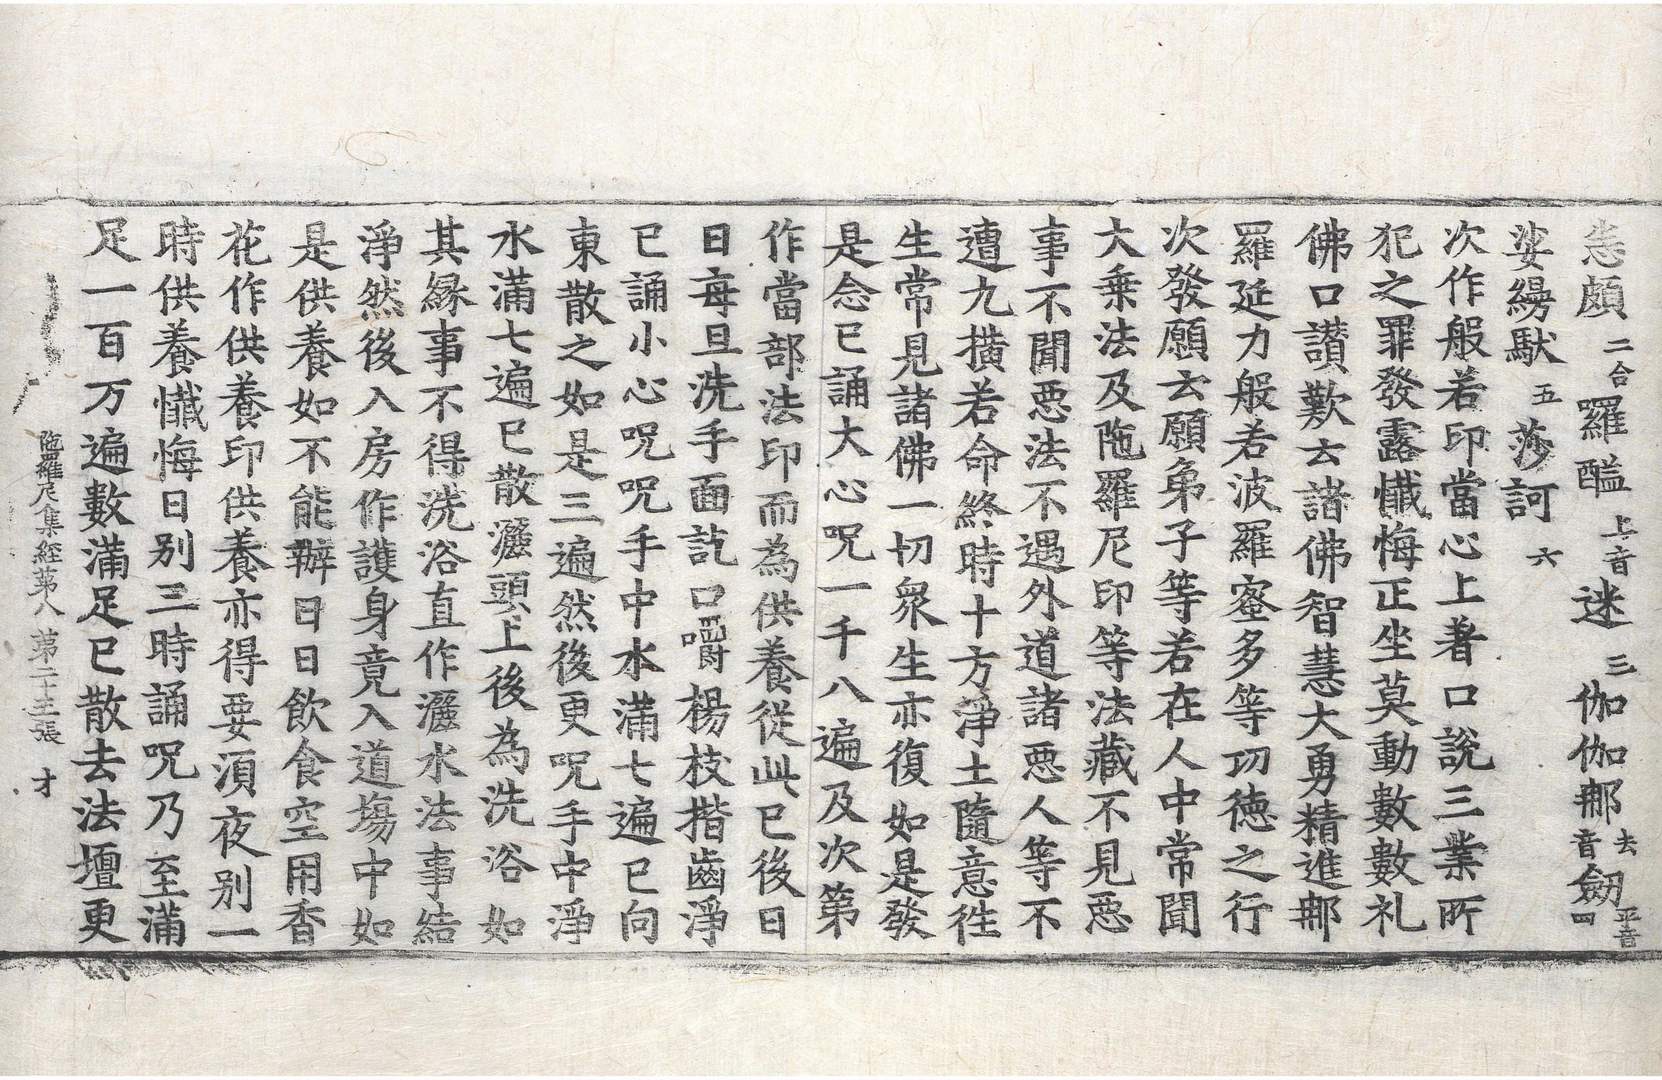 恙頗二合羅醯上音迷三伽伽那去音劒平音四
娑縵馱五莎訶六
次作般若印當心上著口說三業所
犯之罪發露懺悔正坐莫動數數礼
佛口讃歎云諸佛智慧大勇精進那
羅延力般若波羅蜜多等功德之行
次發願云願弟子等若在人中常聞
大乗法及陁羅尼印等法藏不見惡
事不聞惡法不遇外道諸惡人等不
遭九橫若命終時十方淨土隨意徃
生常見諸佛一切衆生亦復如是發
是念已誦大心呪一千八遍及次第
作當部法印而為供養從此已後日
日每旦洗手面訖口嚼楊枝揩齒淨
已誦小心呪呪手中水滿七遍已向
東散之如是三遍然後更呪手中淨
水滿七遍已散灑頭上後為洗浴如
其縁事不得洗浴直作灑水法事結
淨然後入房作護身竟入道場中如
是供養如不能辦日日飲食空用香
花作供養印供養亦得要須夜別一
時供養懺悔日別三時誦呪乃至滿
足一百万遍數滿足已散去法壇更
陁羅尼集經第八 第二十三張 才